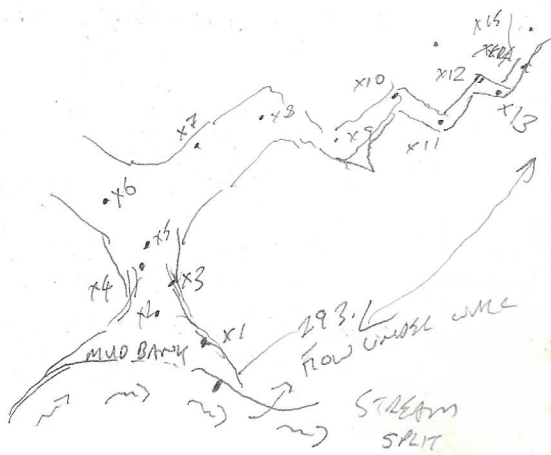 x15
x12
x13
x10
x11
x8
x9
x7
x6
x5
x4
x3
x2
x1
MUD BANK
293.
FLOW UNDER
STREAM
SPLIT